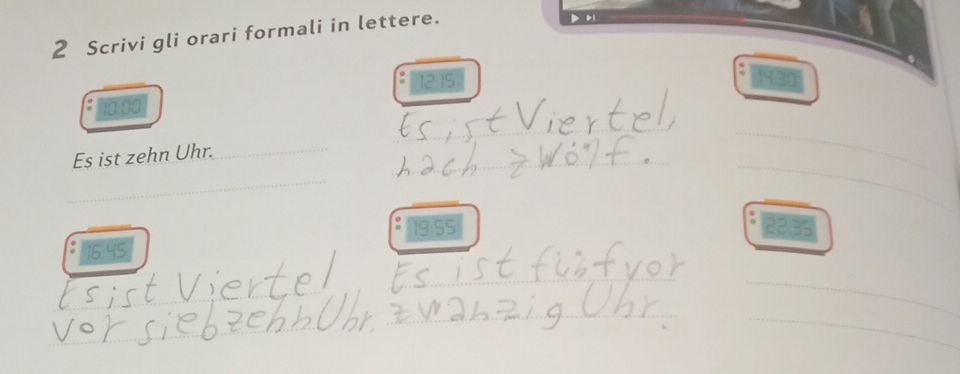 2 Scrivi gli orari formali in lettere.
10:00
12:15
14:30
Es ist zehn Uhr.
Es ist Viertel,
nach zwölf.
16:45
19:55
22:35
Es ist Viertel
vor siebzehn Uhr.
Es ist fünf vor
zwanzig Uhr.